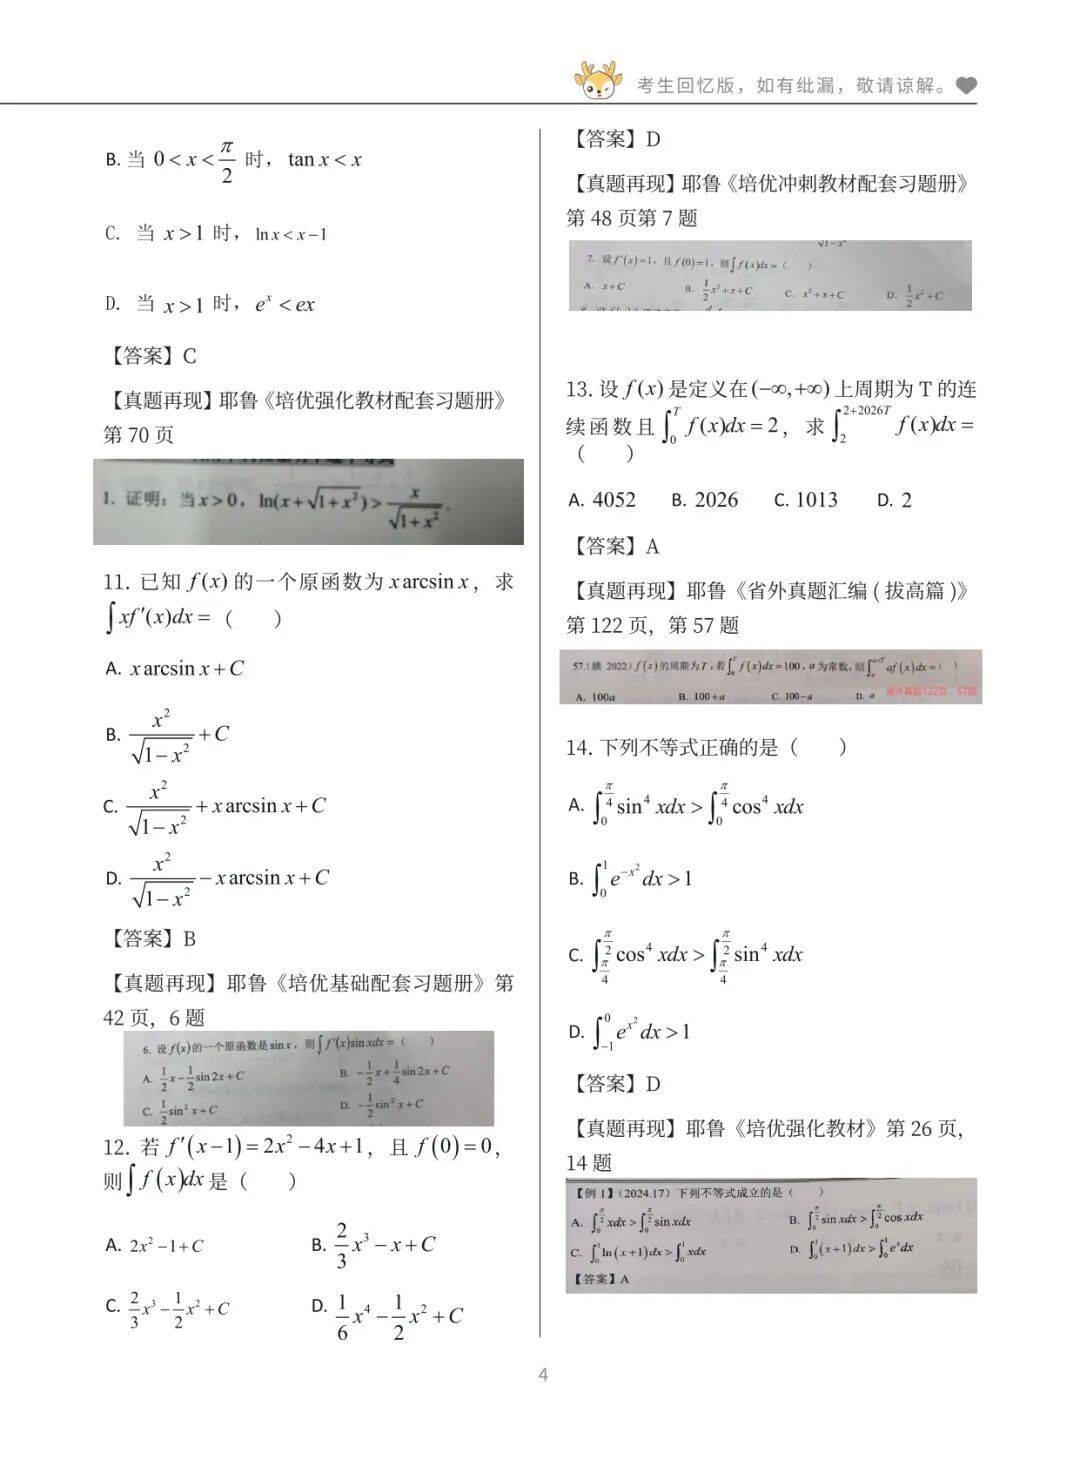 考生回忆版，如有纰漏，敬请谅解。
B. 当 0 < x < π/2 时，tan x < x
C. 当 x > 1 时，ln x < x − 1
D. 当 x > 1 时，e^x < ex
【答案】C
【真题再现】耶鲁《培优强化教材配套习题册》
第 70 页
1. 证明：当 x > 0，ln(x + √(1 + x²)) > x/√(1 + x²).
11. 已知 f(x) 的一个原函数为 x arcsin x，求
∫xf′(x)dx =（　　）
A. x arcsin x + C
B. x²/√(1 − x²) + C
C. x²/√(1 − x²) + x arcsin x + C
D. x²/√(1 − x²) − x arcsin x + C
【答案】B
【真题再现】耶鲁《培优基础配套习题册》第
42 页，6 题
6. 设 f(x)的一个原函数是 sin x，则∫f′(x)sin xdx =（　　）
A. 1/2 x − 1/2 sin 2x + C　B. −1/2 x + 1/4 sin 2x + C
C. 1/2 sin² x + C　D. −1/2 sin² x + C
12. 若 f′(x−1) = 2x² − 4x + 1，且 f(0) = 0，
则∫f(x)dx 是（　　）
A. 2x² − 1 + C　B. 2/3 x³ − x + C
C. 2/3 x³ − 1/2 x² + C　D. 1/6 x⁴ − 1/2 x² + C
【答案】D
【真题再现】耶鲁《培优冲刺教材配套习题册》
第 48 页第 7 题
√1−x²
7. 设 f′(x)=1，且 f(0)=1，则∫f(x)dx =（　　）
A. x + C　B. 1/2 x² + x + C　C. x² + x + C　D. 1/2 x² + C
13. 设 f(x) 是定义在 (−∞,+∞) 上周期为 T 的连
续函数且 ∫₀^T f(x)dx = 2，求 ∫₂^(2+2026T) f(x)dx =
（　　）
A. 4052　B. 2026　C. 1013　D. 2
【答案】A
【真题再现】耶鲁《省外真题汇编 ( 拔高篇 )》
第 122 页，第 57 题
57.(赣 2022) f(x)的周期为T，若∫₀^T f(x)dx = 100，a为常数，则∫ₐ^(a+T) af(x)dx =（　　）
A. 100a　B. 100+a　C. 100−a　D. a　省外真题122页，57题
14. 下列不等式正确的是（　　）
A. ∫₀^(π/4) sin⁴ xdx > ∫₀^(π/4) cos⁴ xdx
B. ∫₀¹ e^(−x²) dx > 1
C. ∫_(π/4)^(π/2) cos⁴ xdx > ∫_(π/4)^(π/2) sin⁴ xdx
D. ∫₋₁⁰ e^(x²) dx > 1
【答案】D
【真题再现】耶鲁《培优强化教材》第 26 页，
14 题
【例 1】(2024.17) 下列不等式成立的是（　　）
A. ∫₀^(π/2) xdx > ∫₀^(π/2) sin xdx　B. ∫₀^(π/2) sin xdx > ∫₀^(π/2) cos xdx
C. ∫₀¹ ln(x+1)dx > ∫₀¹ xdx　D. ∫₀¹ (x+1)dx > ∫₀¹ e^x dx
【答案】A
4